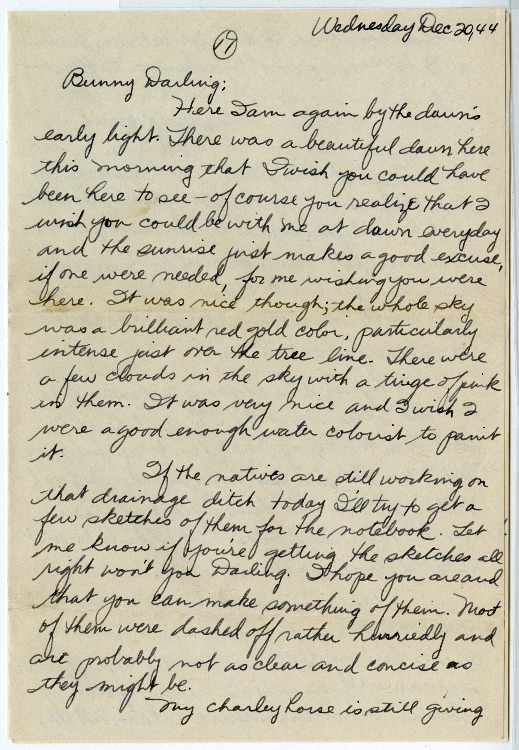 Wednesday Dec 20, 44
19
Bunny Darling;
Here I am again by the dawn's
early light. There was a beautiful dawn here
this morning that I wish you could have
been here to see - of course you realize that I
wish you could be with me at dawn everyday
and the sunrise just makes a good excuse,
if one were needed, for me wishing you were
here. It was nice though; the whole sky
was a brilliant red gold color, particularly
intense just over the tree line. There were
a few clouds in the sky with a tinge of pink
in them. It was very nice and I wish I
were a good enough water colorist to paint
it.
If the natives are still working on
that drainage ditch today I'll try to get a
few sketches of them for the notebook. Let
me know if you're getting the sketches all
right won't you Darling. I hope you are and
that you can make something of them. Most
of them were dashed off rather hurriedly and
are probably not as clear and concise as
they might be.
My charley horse is still giving